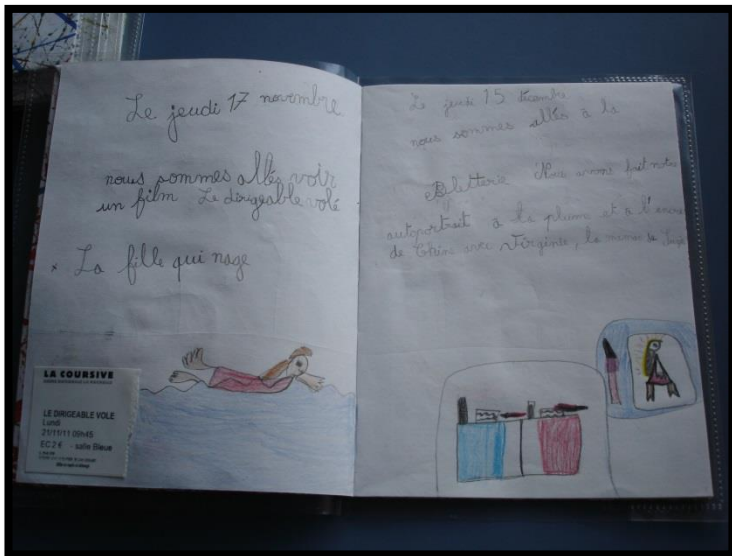 Le jeudi 17 novembre
nous sommes allés voir
un film Le dirigeable volé
* La fille qui nage
LA COURSIVE
LE DIRIGEABLE VOLE
Lundi
21/11/11 09h45
EC 2 € - salle Bleue
Le jeudi 15 décembre
nous sommes allés à la
Bletterie Nous avons fait notre
autoportrait à la plume et à l'encre
de Chine avec Virginie, la maman de